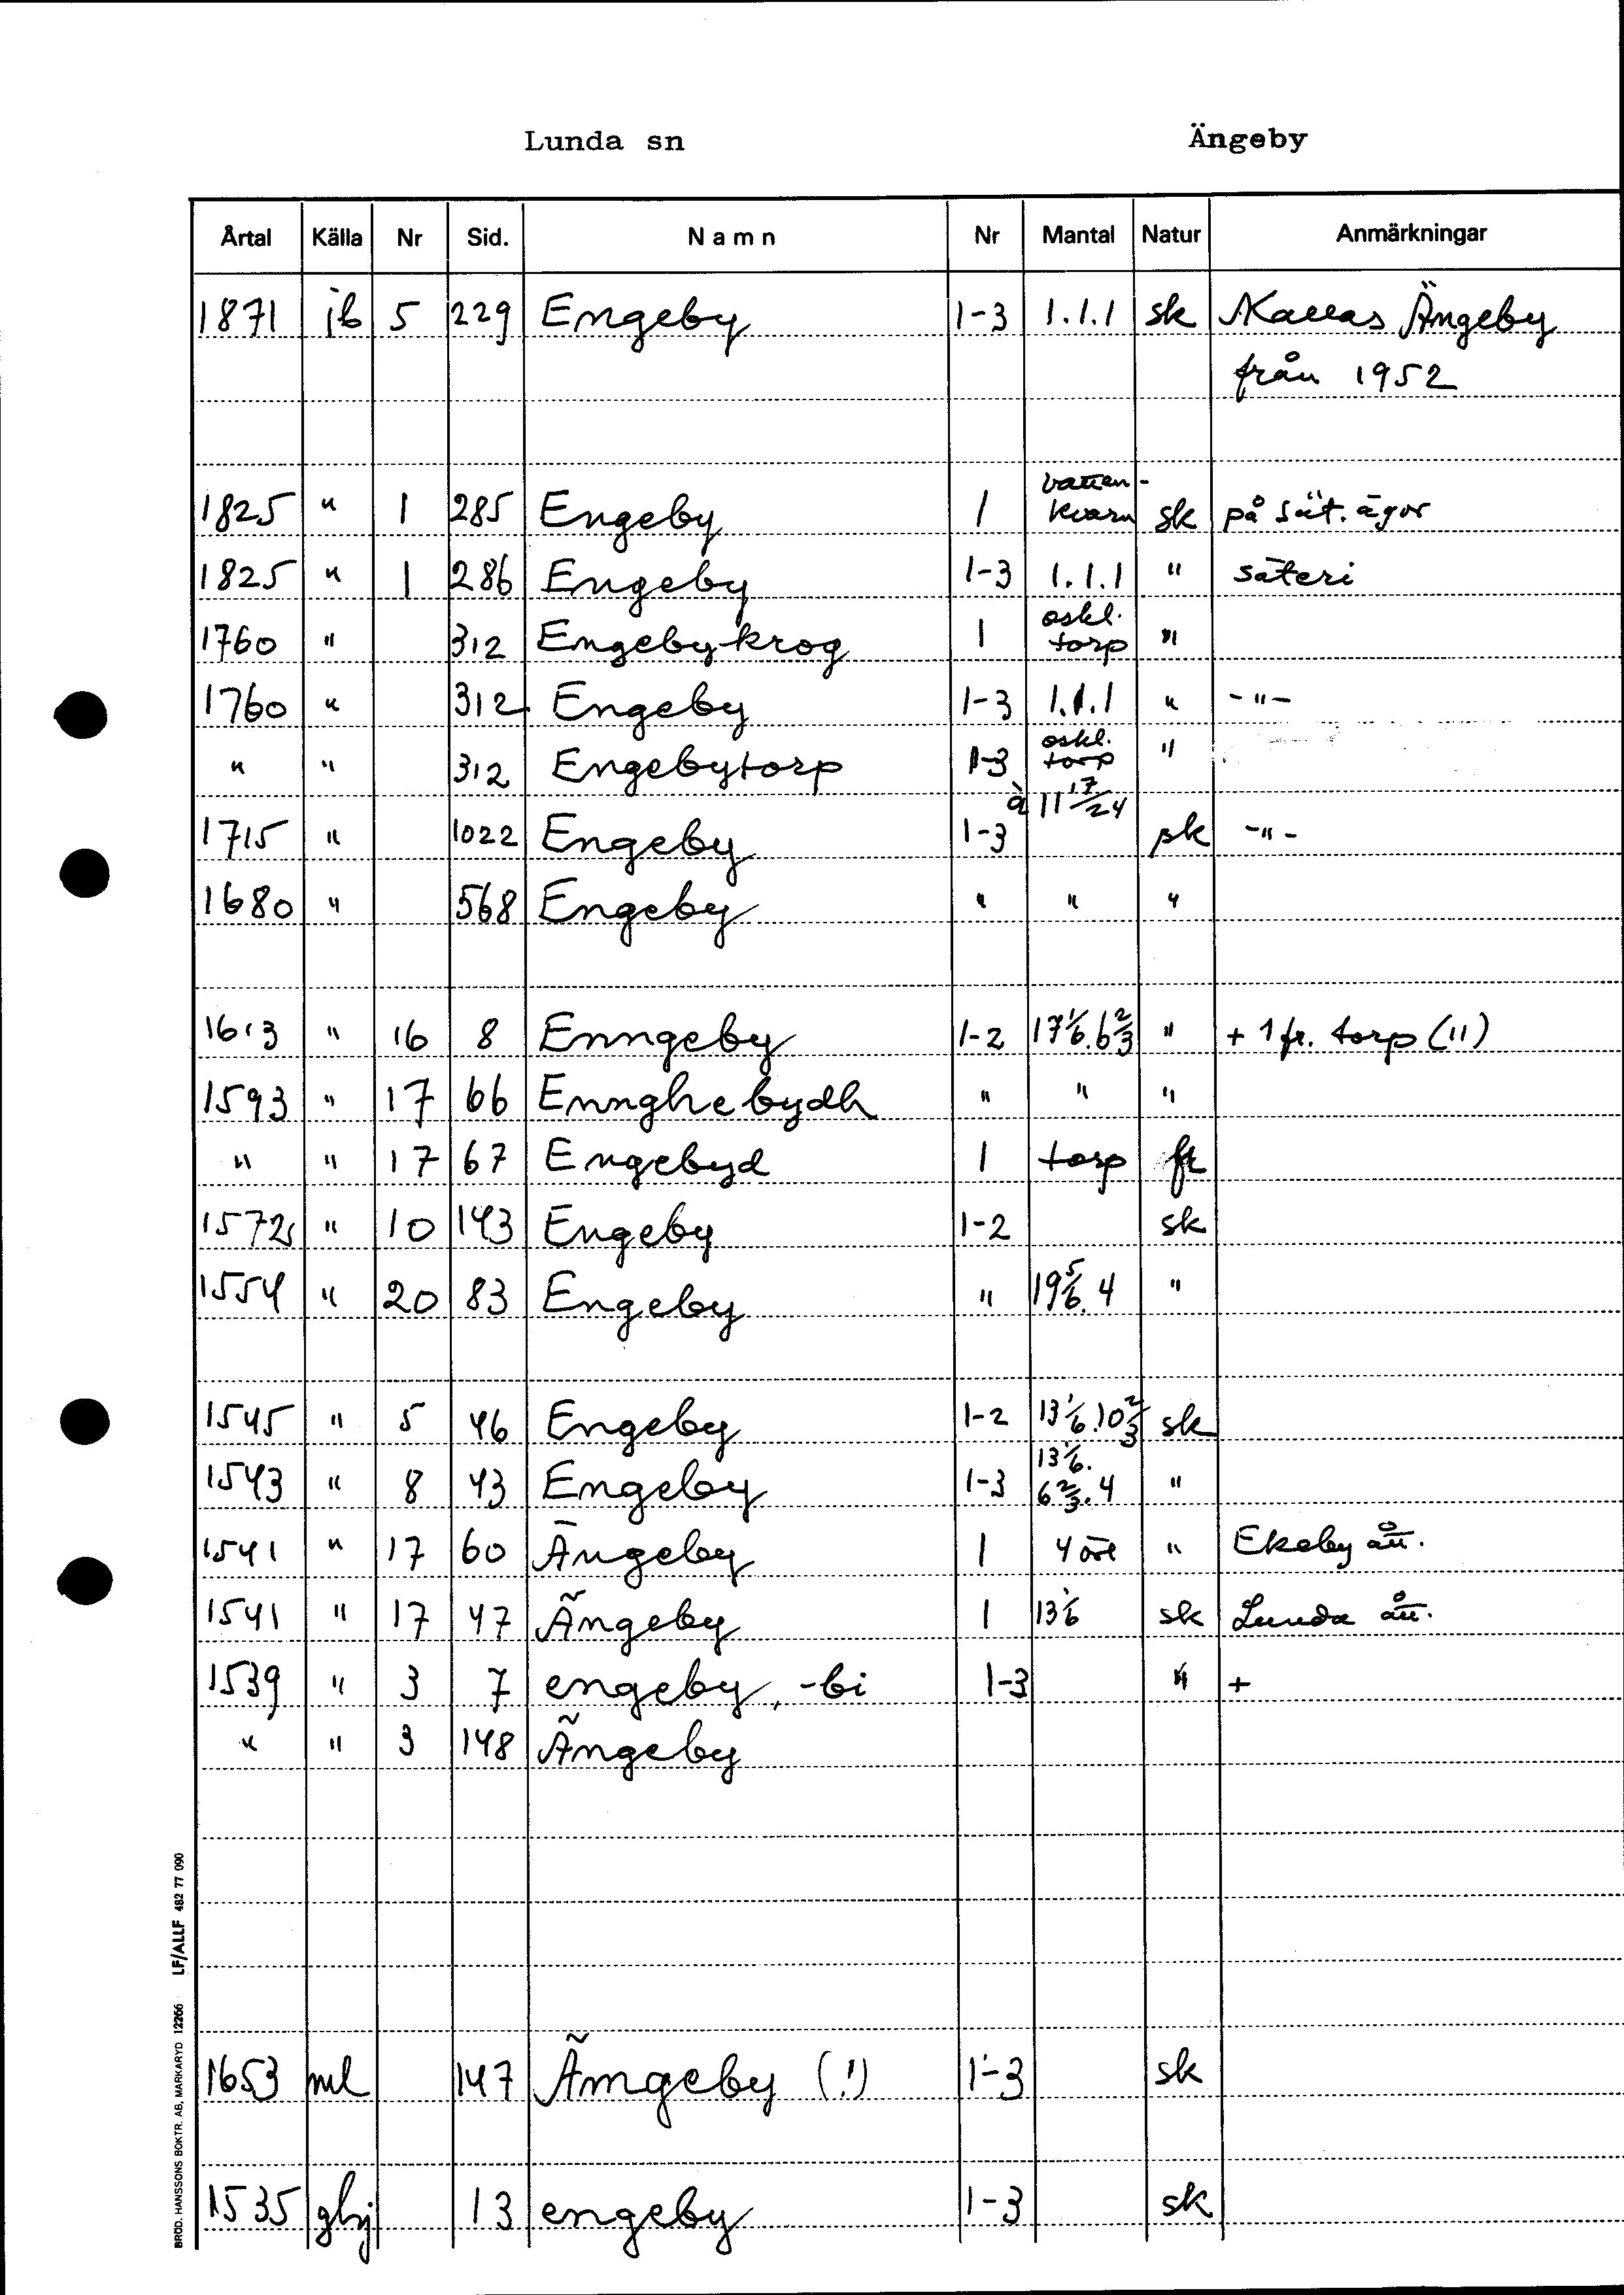 Lunda sn Ängeby
Årtal Källa Nr Sid. Namn Nr Mantal Natur Anmärkningar
1871 jb 5 229 Engeby 1-3 1.1.1 sk Kallas Ängeby
från 1952
vatten-
1825 " 1 285 Engeby 1 kvarn sk på sät. ägor
1825 " 1 286 Engeby 1-3 1.1.1 " säteri
oskl.
1760 " 312 Engebykrog 1 torp "
1760 " 312 Engeby 1-3 1.1.1 " -"-
oskl.
" " 312 Engebytorp 1-3 torp "
à 11 17/24
1715 " 1022 Engeby 1-3 sk -"-
1680 " 568 Engeby " " "
1613 " 16 8 Enngeby 1-2 17 1/6. 6 2/3 " + 1 fr. torp (11)
1593 " 17 66 Ennghebydh " " "
" " 17 67 Engebyd 1 torp fr
1572 " 10 143 Engeby 1-2 sk
1554 " 20 83 Engeby " 19 5/6. 4 "
1545 " 5 46 Engeby 1-2 13 1/6. 10 2/3 sk
13 1/6.
1543 " 8 43 Engeby 1-3 6 2/3. 4 "
1541 " 17 60 Ängeby 1 4 öre " Ekeby ått.
1541 " 17 47 Ängeby 1 13 1/6 sk Lunda ått.
1539 " 3 7 engeby, -bi 1-3 " +
" " 3 148 Ängeby
1653 ml 147 Ämgeby (!) 1-3 sk
1535 gbj 13 engeby 1-3 sk
BRÖD. HANSSONS BOKTR. AB, MARKARYD 12266 LF/ALLF 482 77 090